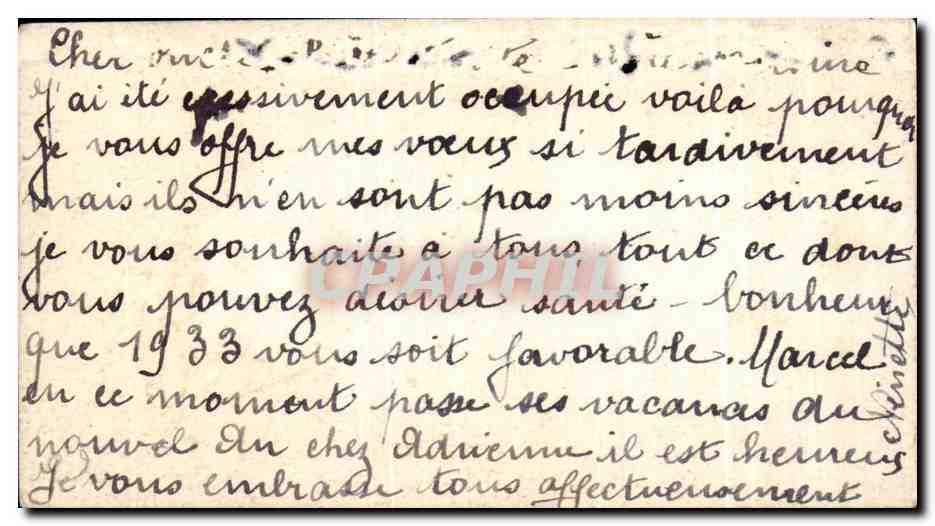 Cher
J'ai été exessivement occupée voilà pourquoi
je vous offre mes vœux si tardivement
mais ils n'en sont pas moins sincères
je vous souhaite à tous, tout ce dont
vous pouvez désirer santé - bonheur
que 1933 vous soit favorable. Marcel
en ce moment passe ses vacances du
nouvel An chez Adrienne il est heureux
Je vous embrasse tous affectueusement
Ninette
CPAPHIL